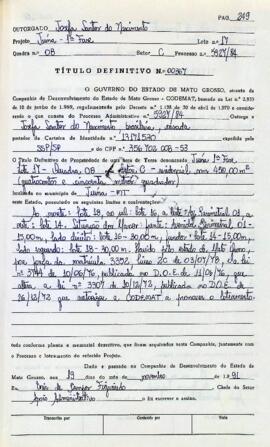 PAG. 249
OUTORGADO Josefa Santos do Nascimento
Projeto Juina - 1ª Fase Lote n.º 17
Quadra n.º 08 Setor C Processo n.º 5927/84
TÍTULO DEFINITIVO N.º 00367
O GOVERNO DO ESTADO DE MATO GROSSO, através da
Companhia de Desenvolvimento do Estado de Mato Grosso - CODEMAT, baseado na Lei n.º 2.933
e considerando o que consta do Processo Administrativo n.º 5927/84
Josefa Santos do Nascimento, brasileira, casada
portador da Carteira de Identidade n.º 13.171.520 expedida pelo
SSP/SP e do CPF n.º 356.702.008-53
o Título Definitivo de Propriedade de uma área de terra denominada Juina 1ª Fase
Lote 17 - Quadra 08 Setor C - residencial, com 450,00 m²
(quatrocentos e cinquenta metros quadrados)
situado no município de Juina - MT
deste Estado, possuindo os seguintes limites e confrontações:
Ao norte: lote 18, ao sul: 16, a leste: Av. Perimetral 01, a
oeste: lote 14. Situação dos Marcos: frente: Avenida Perimetral 01 -
15,00m, lado direito: lote 16 - 30,00m, fundos: lote 14 - 15,00m,
lado esquerdo: lote 18 - 30,00m. Havido pelo Estado de Mato Grosso,
por força da matrícula 3352 livro 2C de 03/07/78, da lei
nº 3744 de 10/06/76, publicada no D.O.E. de 11/06/76, que
altera a lei nº 3307 de 18/12/72, publicada no D.O.E. de
26/12/72 que autoriza a CODEMAT a promover o loteamento.
toda conforme planta e memorial descritivo, que ficam arquivados nesta Companhia, juntamente com
o Processo e Loteamento do referido Projeto.
Dado e passado na Companhia de Desenvolvimento do Estado de
Mato Grosso, aos 19 dias do mês de novembro de 1.991
Eu, de Campos Figueiredo Chefe do Setor
Apoio Administrativo o fiz escrever e assino.
Transcrito por Conferido por Visto